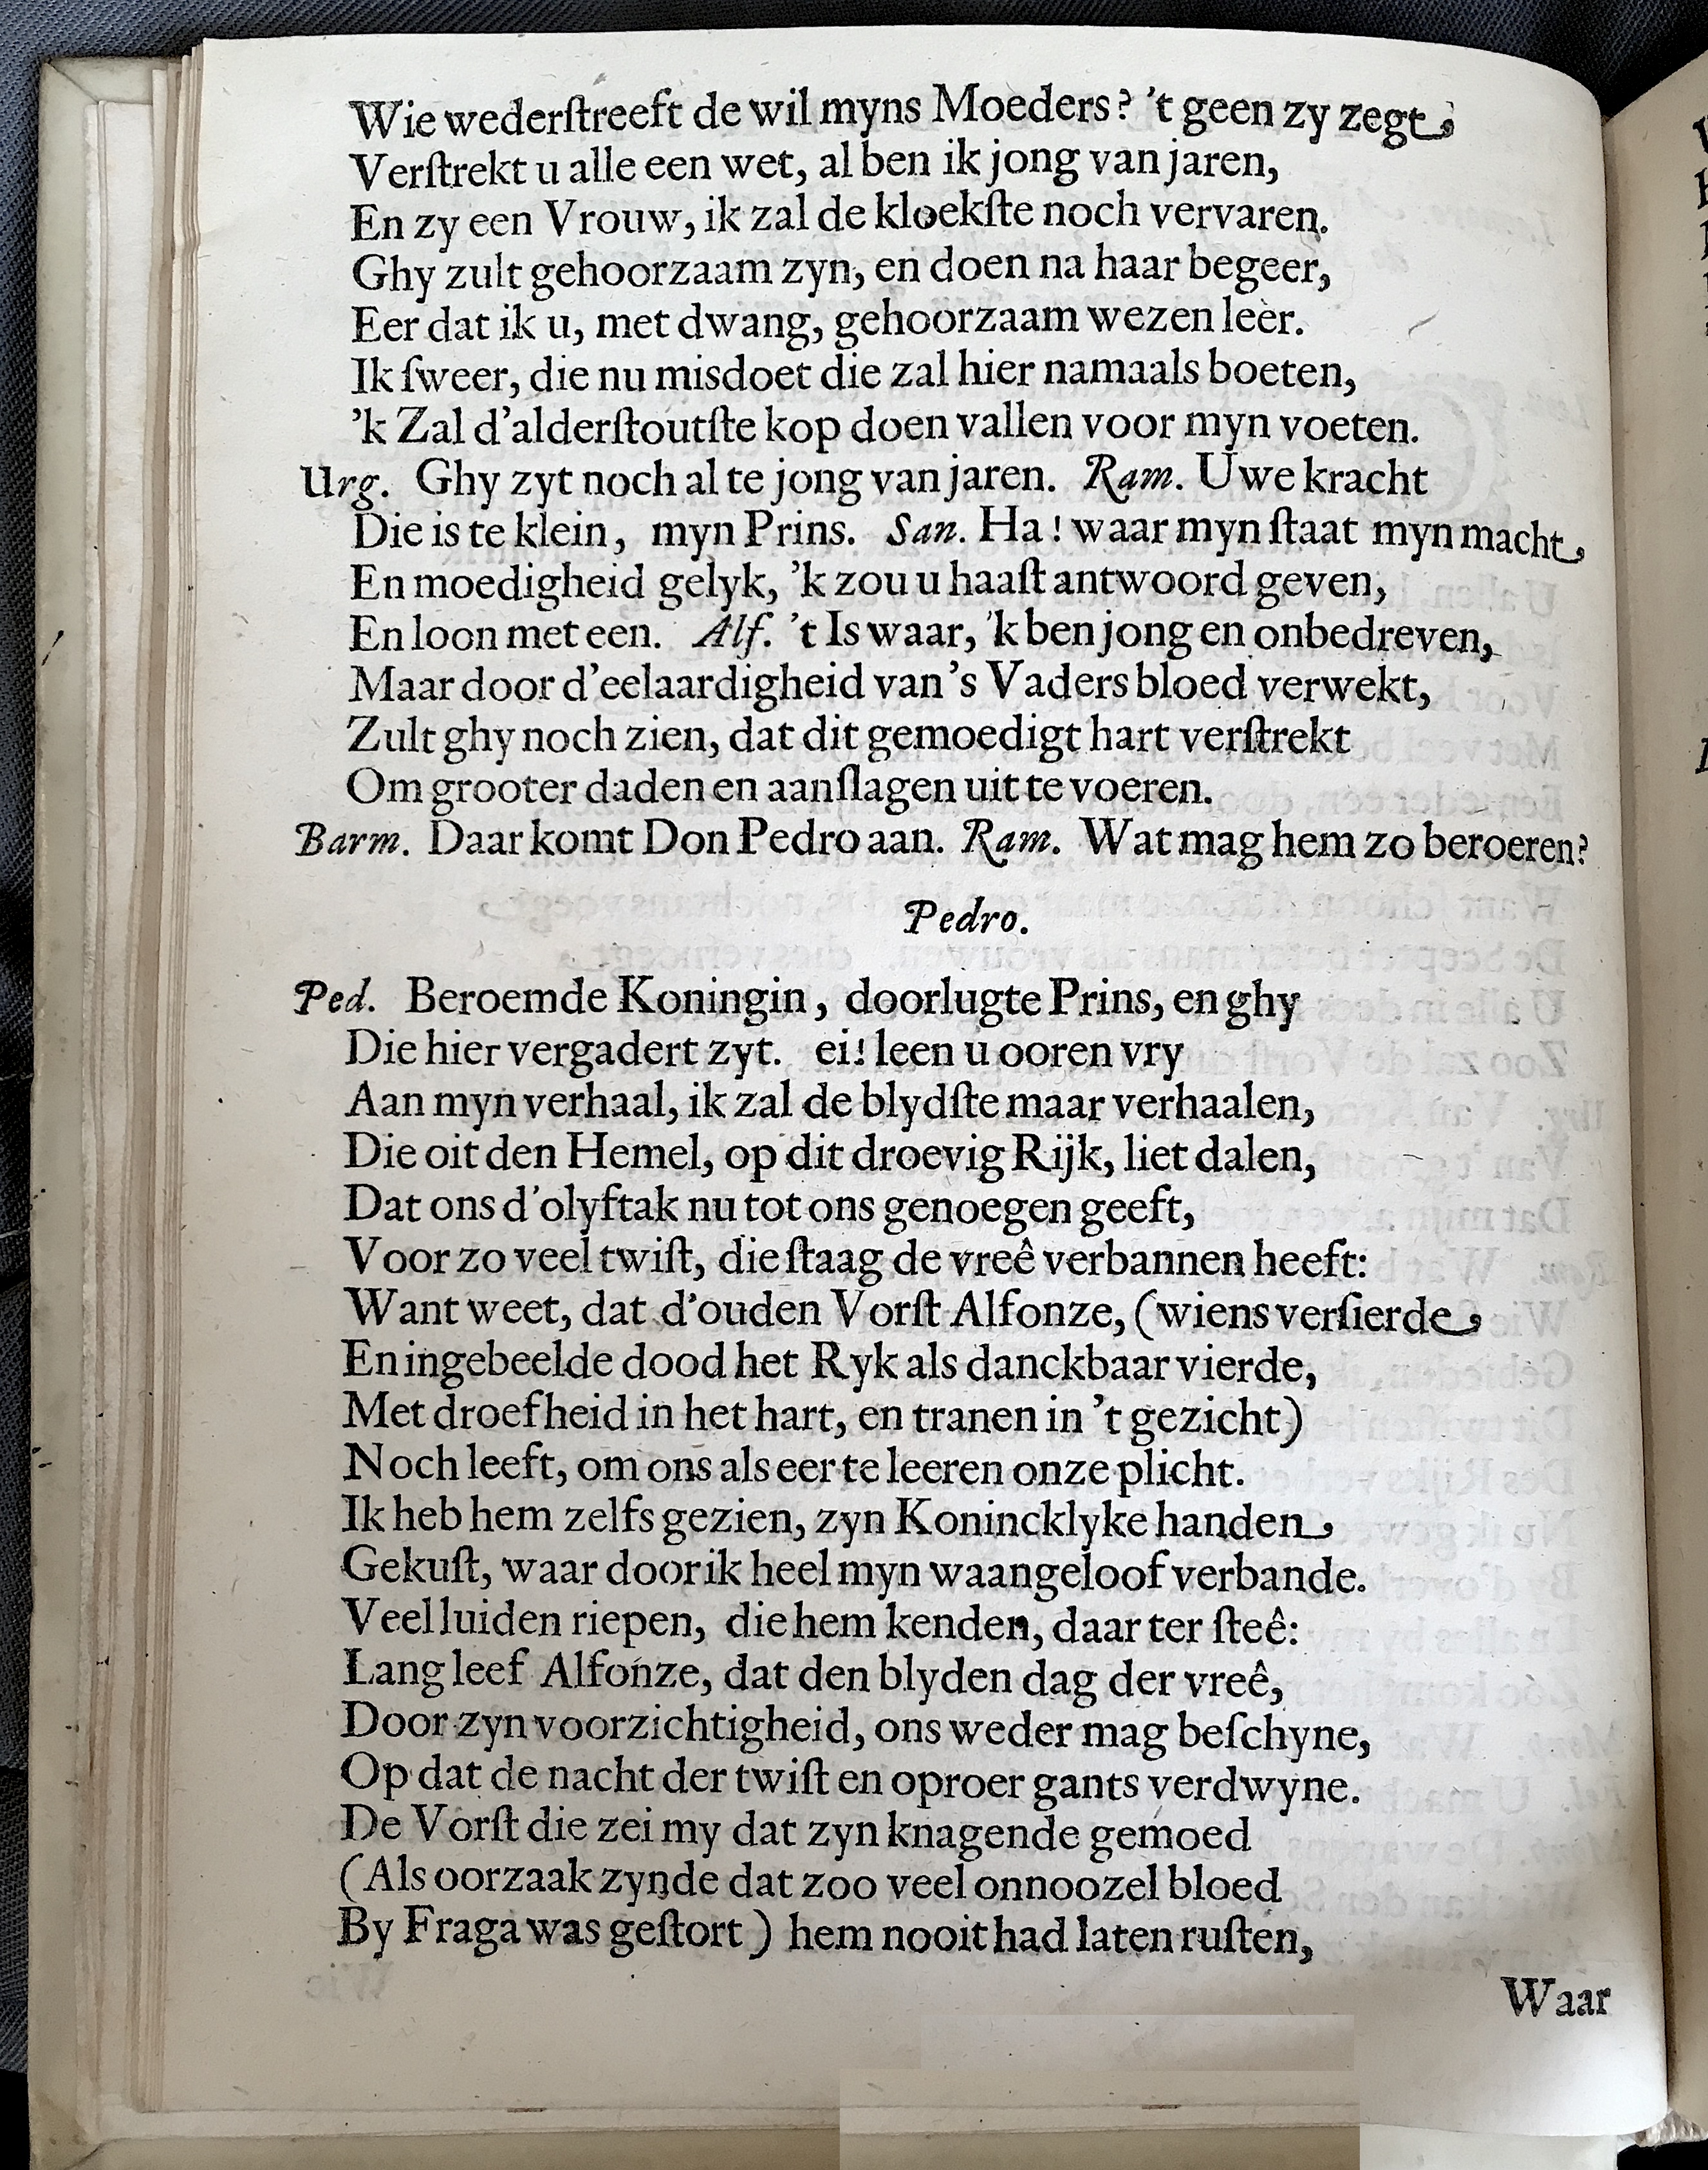 Wie wederſtreeft de wil myns Moeders? 't geen zy zegt,
Verſtrekt u alle een wet, al ben ik jong van jaren,
En zy een Vrouw, ik zal de kloekſte noch vervaren.
Ghy zult gehoorzaam zyn, en doen na haar begeer,
Eer dat ik u, met dwang, gehoorzaam wezen leer.
Ik ſweer, die nu misdoet die zal hier namaals boeten,
'k Zal d'alderſtoutſte kop doen vallen voor myn voeten.
Urg. Ghy zyt noch al te jong van jaren. Ram. Uwe kracht
Die is te klein, myn Prins. San. Ha! waar myn ſtaat myn macht,
En moedigheid gelyk, 'k zou u haaſt antwoord geven,
En loon met een. Alf. 't Is waar, 'k ben jong en onbedreven,
Maar door d'eelaardigheid van 's Vaders bloed verwekt,
Zult ghy noch zien, dat dit gemoedigt hart verſtrekt
Om grooter daden en aanſlagen uit te voeren.
Barm. Daar komt Don Pedro aan. Ram. Wat mag hem zo beroeren?
Pedro.
Ped. Beroemde Koningin, doorlugte Prins, en ghy
Die hier vergadert zyt. ei! leen u ooren vry
Aan myn verhaal, ik zal de blydſte maar verhaalen,
Die oit den Hemel, op dit droevig Rijk, liet dalen,
Dat ons d'olyftak nu tot ons genoegen geeft,
Voor zo veel twiſt, die ſtaag de vreê verbannen heeft:
Want weet, dat d'ouden Vorſt Alfonze, (wiens verſierde,
En ingebeelde dood het Ryk als danckbaar vierde,
Met droefheid in het hart, en tranen in 't gezicht)
Noch leeft, om ons als eer te leeren onze plicht.
Ik heb hem zelfs gezien, zyn Konincklyke handen,
Gekuſt, waar door ik heel myn waangeloof verbande.
Veel luiden riepen, die hem kenden, daar ter ſteê:
Lang leef Alfonze, dat den blyden dag der vreê,
Door zyn voorzichtigheid, ons weder mag beſchyne,
Op dat de nacht der twiſt en oproer gants verdwyne.
De Vorſt die zei my dat zyn knagende gemoed
(Als oorzaak zynde dat zoo veel onnoozel bloed
By Fraga was geſtort) hem nooit had laten ruſten,
Waar